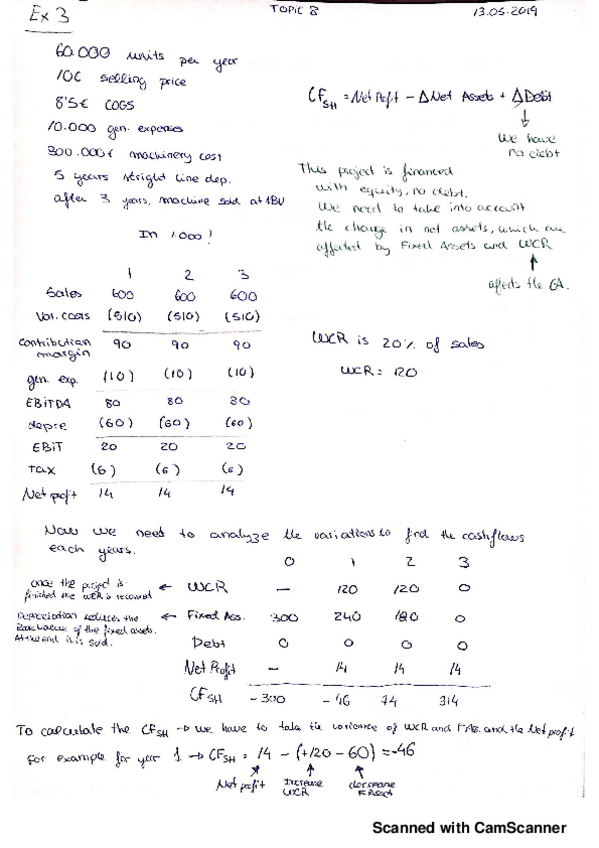 Ex 3
TOPIC 8
13.05.2019
60.000 units per year
10€ selling price
8'5€ COGS
10.000 gen. expenses
300.000€ machinery cost
5 years stright line dep.
after 3 years, machine sold at NBV
In 1000!
CF SH = Net Profit - Δ Net Assets + Δ Debt
We have
no debt
This project is financed
with equity, no debt.
We need to take into account
the change in net assets, which are
affected by Fixed Assets and WCR
affects the CA.
1 2 3
Sales 600 600 600
Var. costs (510) (510) (510)
contribution margin 90 90 90
gen. exp. (10) (10) (10)
EBITDA 80 80 80
depre (60) (60) (60)
EBIT 20 20 20
Tax (6) (6) (6)
Net profit 14 14 14
WCR is 20% of sales
WCR = 120
Now we need to analyze the variations to find the cashflows
each years.
0 1 2 3
once the project is
finished the WCR is recovered
← WCR - 120 120 0
Depreciation reduces the
Book value of the fixed assets.
At the end it is sold.
← Fixed Ass. 300 240 180 0
Debt 0 0 0 0
Net Profit - 14 14 14
CF SH -300 -46 74 314
To calculate the CF SH → we have to take the variance of WCR and F.As. and the Net profit
For example for year 1 → CF SH = 14 - (+120 - 60) = -46
Net profit
Increase
WCR
decrease
F Asset
Scanned with CamScanner